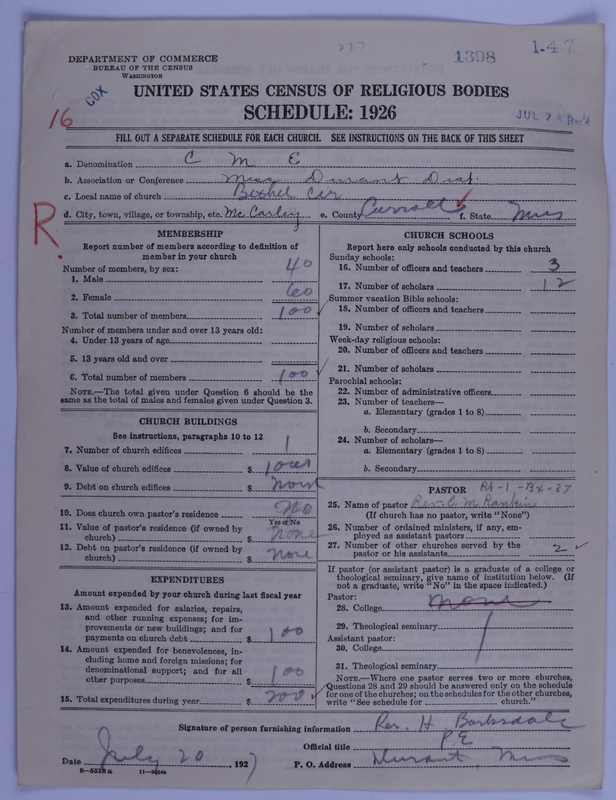 237
1398
1-47
DEPARTMENT OF COMMERCE
BUREAU OF THE CENSUS
WASHINGTON
COX
16
UNITED STATES CENSUS OF RELIGIOUS BODIES
SCHEDULE: 1926
JUL 2
FILL OUT A SEPARATE SCHEDULE FOR EACH CHURCH. SEE INSTRUCTIONS ON THE BACK OF THIS SHEET
a. Denomination C M E
b. Association or Conference Miss Durant Dist.
c. Local name of church Bethel Cir
d. City, town, village, or township, etc. McCarley e. County f. State Miss
R.
MEMBERSHIP
Report number of members according to definition of
member in your church
Number of members, by sex:
1. Male 40
2. Female 60
3. Total number of members 100
Number of members under and over 13 years old:
4. Under 13 years of age
5. 13 years old and over
6. Total number of members 100
NOTE.—The total given under Question 6 should be the
same as the total of males and females given under Question 3.
CHURCH BUILDINGS
See instructions, paragraphs 10 to 12
7. Number of church edifices 1
8. Value of church edifices $
9. Debt on church edifices $ none
10. Does church own pastor's residence? No
Yes or No
11. Value of pastor's residence (if owned by
church) $ none
12. Debt on pastor's residence (if owned by
church) $ none
EXPENDITURES
Amount expended by your church during last fiscal year
13. Amount expended for salaries, repairs,
and other running expenses; for im-
provements or new buildings; and for
payments on church debt $ 100
14. Amount expended for benevolences, in-
cluding home and foreign missions; for
denominational support; and for all
other purposes $ 100
15. Total expenditures during year $ 200
CHURCH SCHOOLS
Report here only schools conducted by this church
Sunday schools:
16. Number of officers and teachers 3
17. Number of scholars 12
Summer vacation Bible schools:
18. Number of officers and teachers
19. Number of scholars
Week-day religious schools:
20. Number of officers and teachers
21. Number of scholars
Parochial schools:
22. Number of administrative officers
23. Number of teachers—
a. Elementary (grades 1 to 8)
b. Secondary
24. Number of scholars—
a. Elementary (grades 1 to 8)
b. Secondary
PASTOR Rt-1-Bx-37
25. Name of pastor Rev. C. M. Rankin
(If church has no pastor, write "None")
26. Number of ordained ministers, if any, em-
ployed as assistant pastors
27. Number of other churches served by the
pastor or his assistants 2
If pastor (or assistant pastor) is a graduate of a college or
theological seminary, give name of institution below. (If
not a graduate, write "No" in the space indicated.)
Pastor:
28. College none
29. Theological seminary
Assistant pastor:
30. College
31. Theological seminary
NOTE.—Where one pastor serves two or more churches,
Questions 28 and 29 should be answered only on the schedule
for one of the churches; on the schedules for the other churches,
write "See schedule for church."
Signature of person furnishing information Rev. H Barksdale
Official title P E
Date July 20, 1927 P. O. Address Durant, Miss
8-5518a